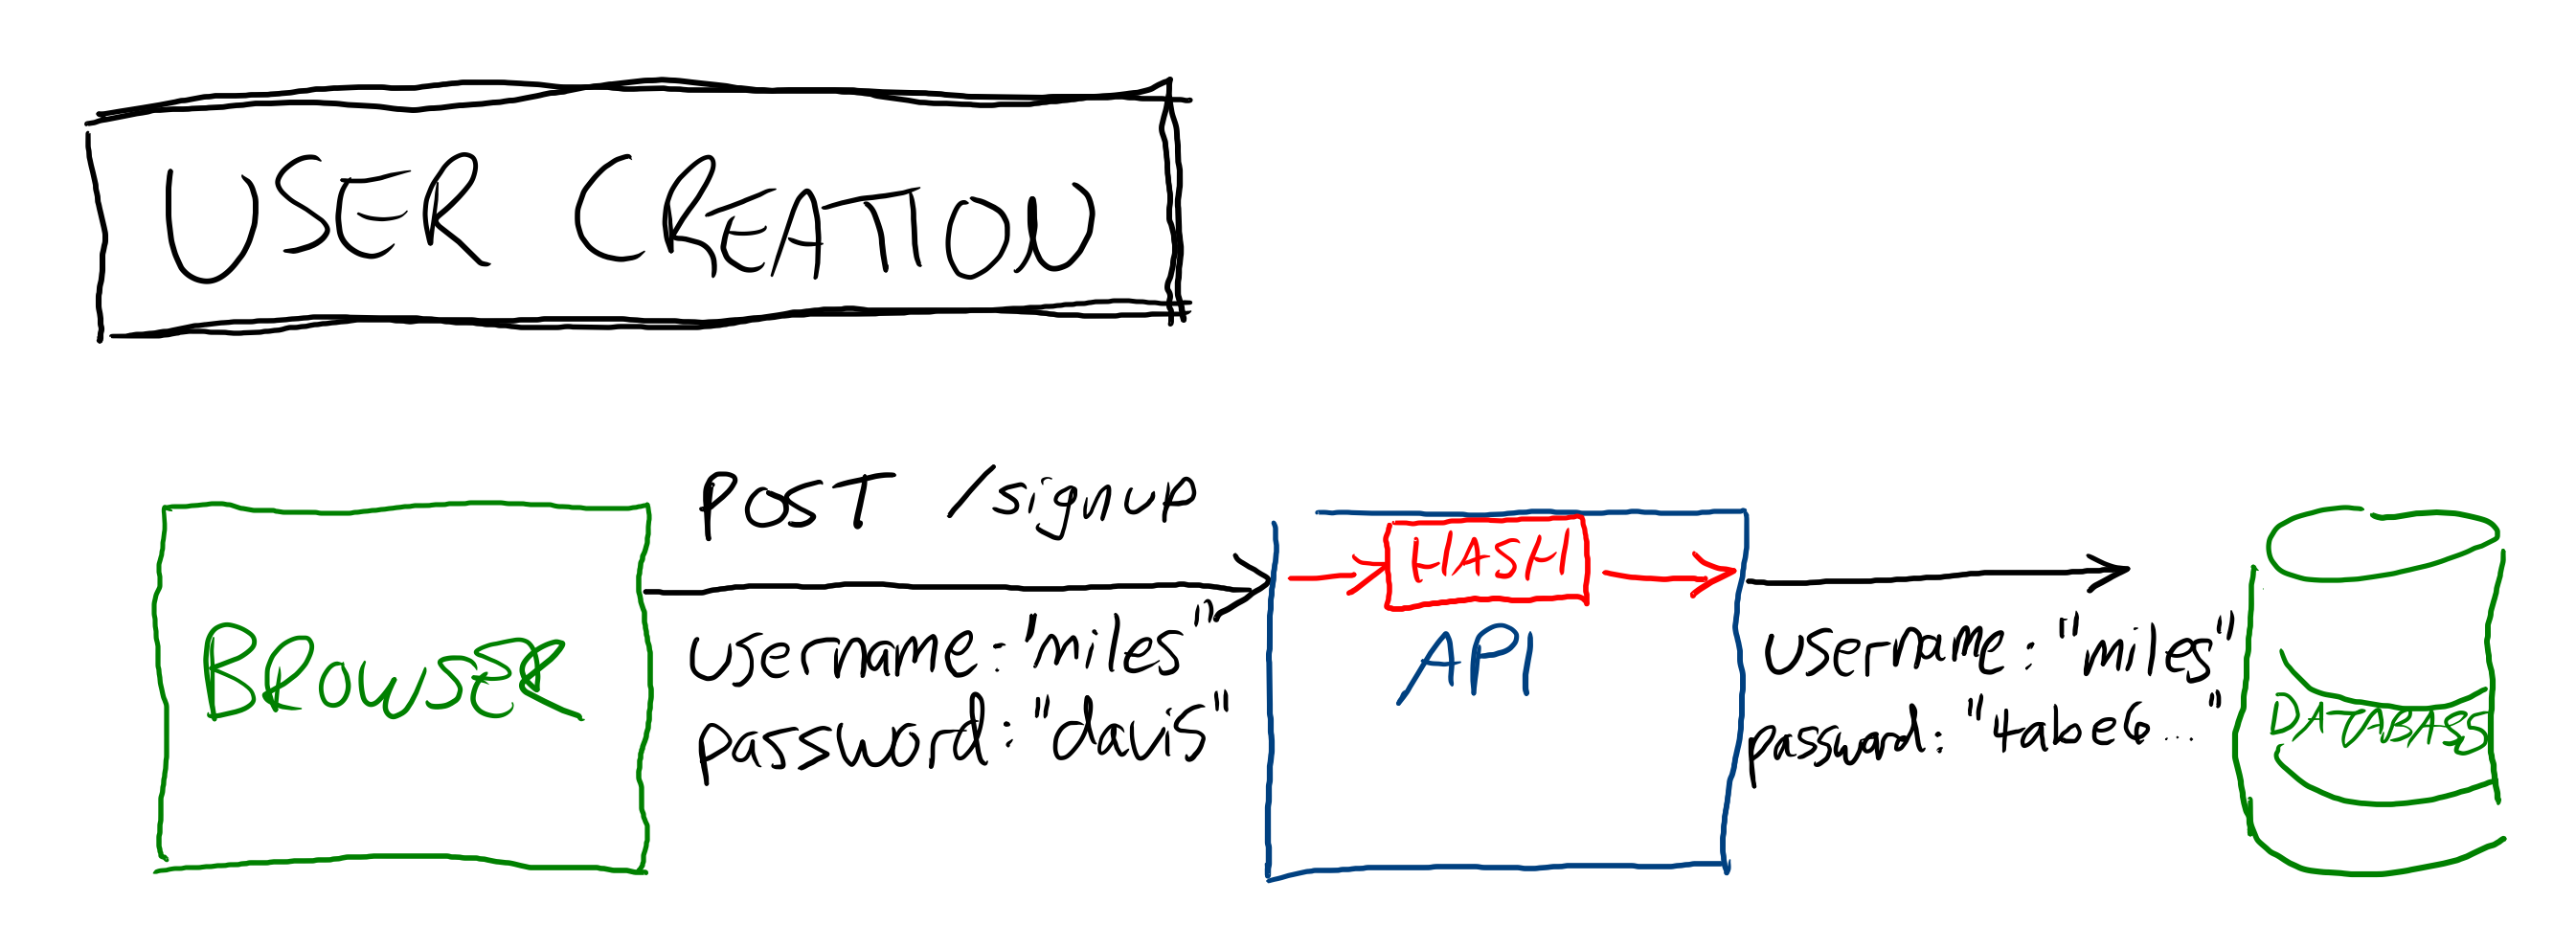 USER CREATION
POST /signup
username: "miles"
password: "davis"
BROWSER
HASH
API
username: "miles"
password: "4abe6..."
DATABASE